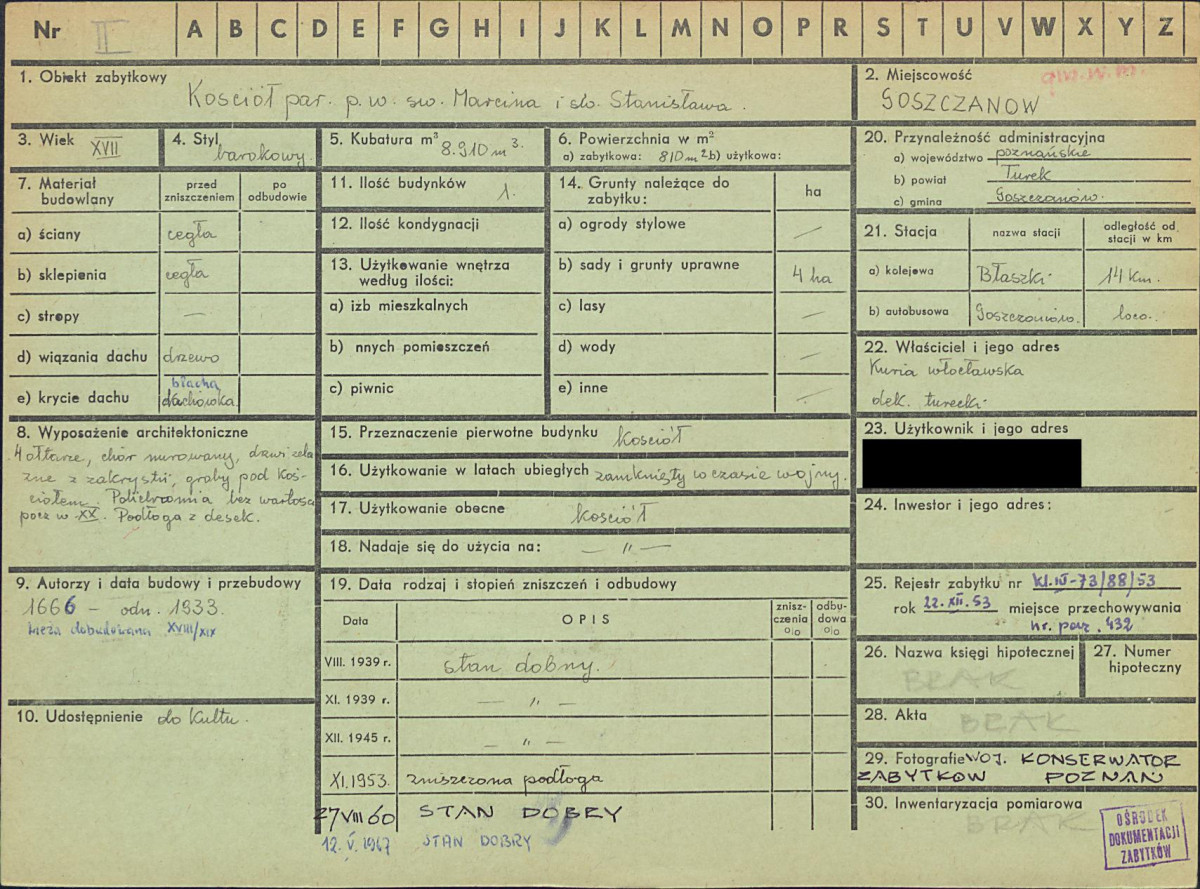 Nr II A B C D E F G H I J K L M N O P R S T U V W X Y Z
1. Obiekt zabytkowy
Kościół par. p.w. św. Marcina i św. Stanisława.
2. Miejscowość
GOSZCZANÓW
3. Wiek XVII
4. Styl barokowy.
5. Kubatura m³ 8.910 m³.
6. Powierzchnia w m²
a) zabytkowa: 810 m² b) użytkowa:
7. Materiał budowlany
przed zniszczeniem
po odbudowie
a) ściany cegła
b) sklepienia cegła
c) stropy —
d) wiązania dachu drzewo
e) krycie dachu blacha dachówka
8. Wyposażenie architektoniczne
4 ołtarze, chór murowany, drzwi żela
zne z zakrystii, groby pod koś-
ciołem. Polichromia bez wartości
pocz w XX. Podłoga z desek.
9. Autorzy i data budowy i przebudowy
1666 – odn. 1933.
wieża dobudowana XVIII/XIX
10. Udostępnienie do kultu.
11. Ilość budynków 1.
12. Ilość kondygnacji
13. Użytkowanie wnętrza
według ilości:
a) izb mieszkalnych
b) nnych pomieszczeń
c) piwnic
14. Grunty należące do
zabytku:
ha
a) ogrody stylowe —
b) sady i grunty uprawne 4 ha
c) lasy —
d) wody —
e) inne —
15. Przeznaczenie pierwotne budynku kościół
16. Użytkowanie w latach ubiegłych zamknięty w czasie wojny.
17. Użytkowanie obecne kościół
18. Nadaje się do użycia na: — " —
19. Data rodzaj i stopień zniszczeń i odbudowy
Data OPIS znisz-czenia % odbu-dowa %
VIII. 1939 r. stan dobry.
XI. 1939 r. — " —
XII. 1945 r. — " —
XI.1953. zniszczona podłoga
27 VIII 60 STAN DOBRY
12. V. 1967 STAN DOBRY
20. Przynależność administracyjna
a) województwo poznańskie
b) powiat Turek
c) gmina Goszczanów.
21. Stacja
nazwa stacji
odległość od stacji w km
a) kolejowa Błaszki 14 km.
b) autobusowa Goszczanów. loco.
22. Właściciel i jego adres
Kuria włocławska
dek. turecki
23. Użytkownik i jego adres
24. Inwestor i jego adres:
25. Rejestr zabytku nr kl.IV-73/88/53
rok 22.XII.53 miejsce przechowywania
nr. poz. 432
26. Nazwa księgi hipotecznej
BRAK
27. Numer hipoteczny
28. Akta BRAK
29. Fotografie WOJ. KONSERWATOR
ZABYTKÓW POZNAŃ
30. Inwentaryzacja pomiarowa
BRAK
OŚRODEK
DOKUMENTACJI
ZABYTKÓW